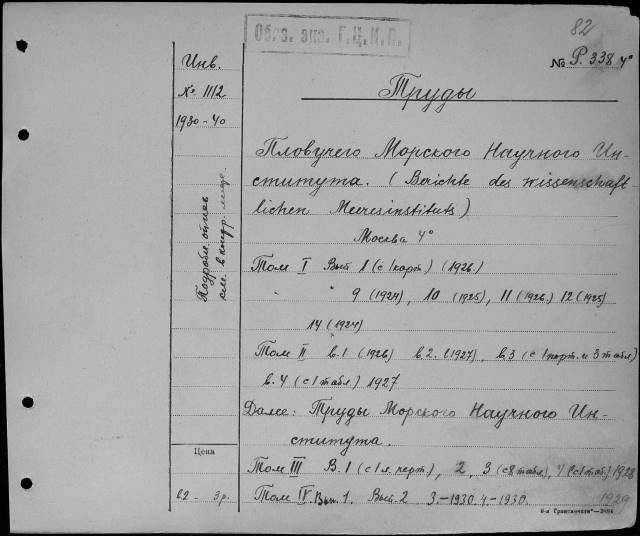 82
Обяз. экз. Г.Ц.К.П.
№ P. 338 4°
Инв.
№ 1112
1930-40
Труды
Пловучего Морского Научного Ин-
ститута. (Berichte des wissenschaft
lichen Meeresinstituts)
Москва 4°
Том I Вып 1 (с 1 карт) (1926.)
" " 9 (1924), 10 (1925), 11 (1926.) 12 (1925)
14 (1924)
Том II в.1 (1926) в.2. (1927), в.3 (с 1 карт. и 3 табл)
в.4 (с 1 табл) 1927
Далее: Труды Морского Научного Ин-
ститута.
Том III В.1 (с 1 л. черт), 2, 3 (с 8 табл), 4 (с 1 табл) 1928
1929
Том IV Вып. 1. Вып. 2 3.-1930. 4.-1930.
Подробн.
см. в
Цена
в.2 - 3 р.